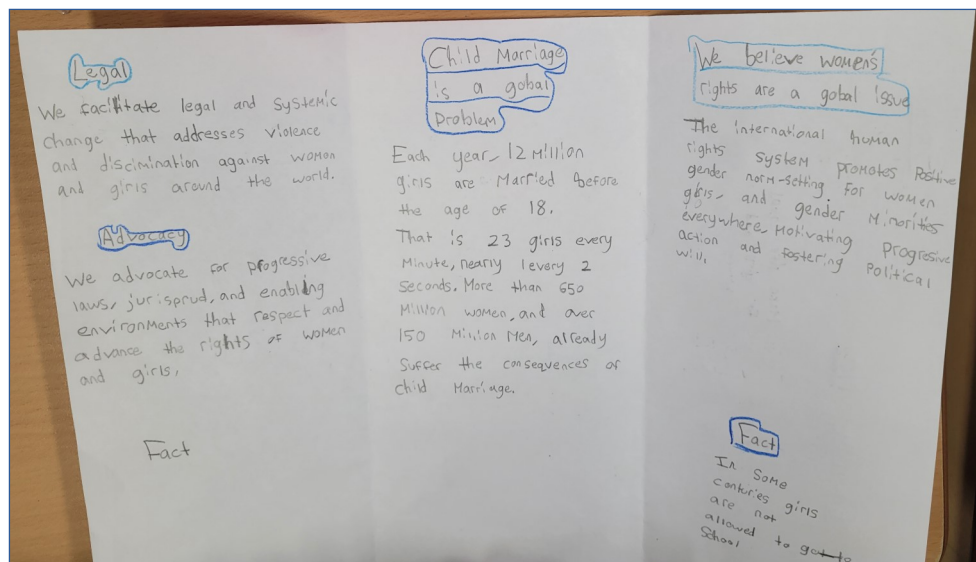 Legal
We facilitate legal and systemic
change that addresses violence
and discimination against women
and girls around the world.
Advocacy
We advocate for progressive
laws, jurisprud, and enabling
environments that respect and
advance the rights of women
and girls,
Fact
Child Marriage
is a gobal
Problem
Each year, 12 Million
girls are Married before
the age of 18.
That is 23 girls every
Minute, nearly 1 every 2
seconds. More than 650
Million women, and over
150 Million Men, already
suffer the consequences of
child Marriage.
We believe women's
rights are a gobal issue
The international human
rights system promotes Positive
gender norm-setting for women
girls, and gender Minorities
everywhere, Motivating progresive
action and fostering political
will,
Fact
In some
conturies girls
are not
allowed to go to
School